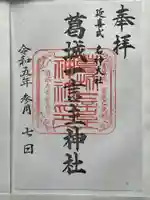 奉拝
延喜式
名神大社
葛城一言主神社
令和五年 参月 七日